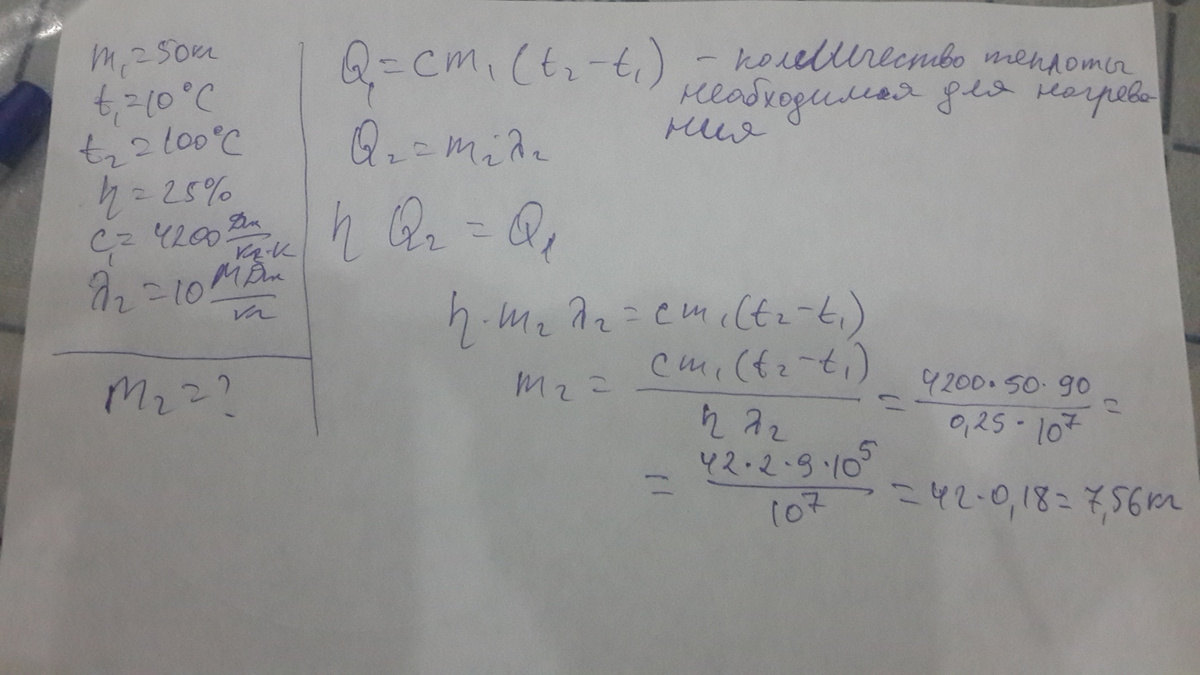 m₁ = 50 кг
t₁ = 10 °C
t₂ = 100 °C
η = 25%
c₁ = 4200 Дж/кг·К
λ₂ = 10 МДж/кг
m₂ = ?
Q₁ = cm₁(t₂ - t₁) - количество теплоты
необходимая для нагрева-
ния
Q₂ = m₂·λ₂
η Q₂ = Q₁
η·m₂ λ₂ = cm₁(t₂ - t₁)
m₂ = cm₁(t₂ - t₁)/η λ₂ = 4200·50·90/0,25·10⁷ =
= 42·2·9·10⁵/10⁷ = 42·0,18 = 7,56 кг